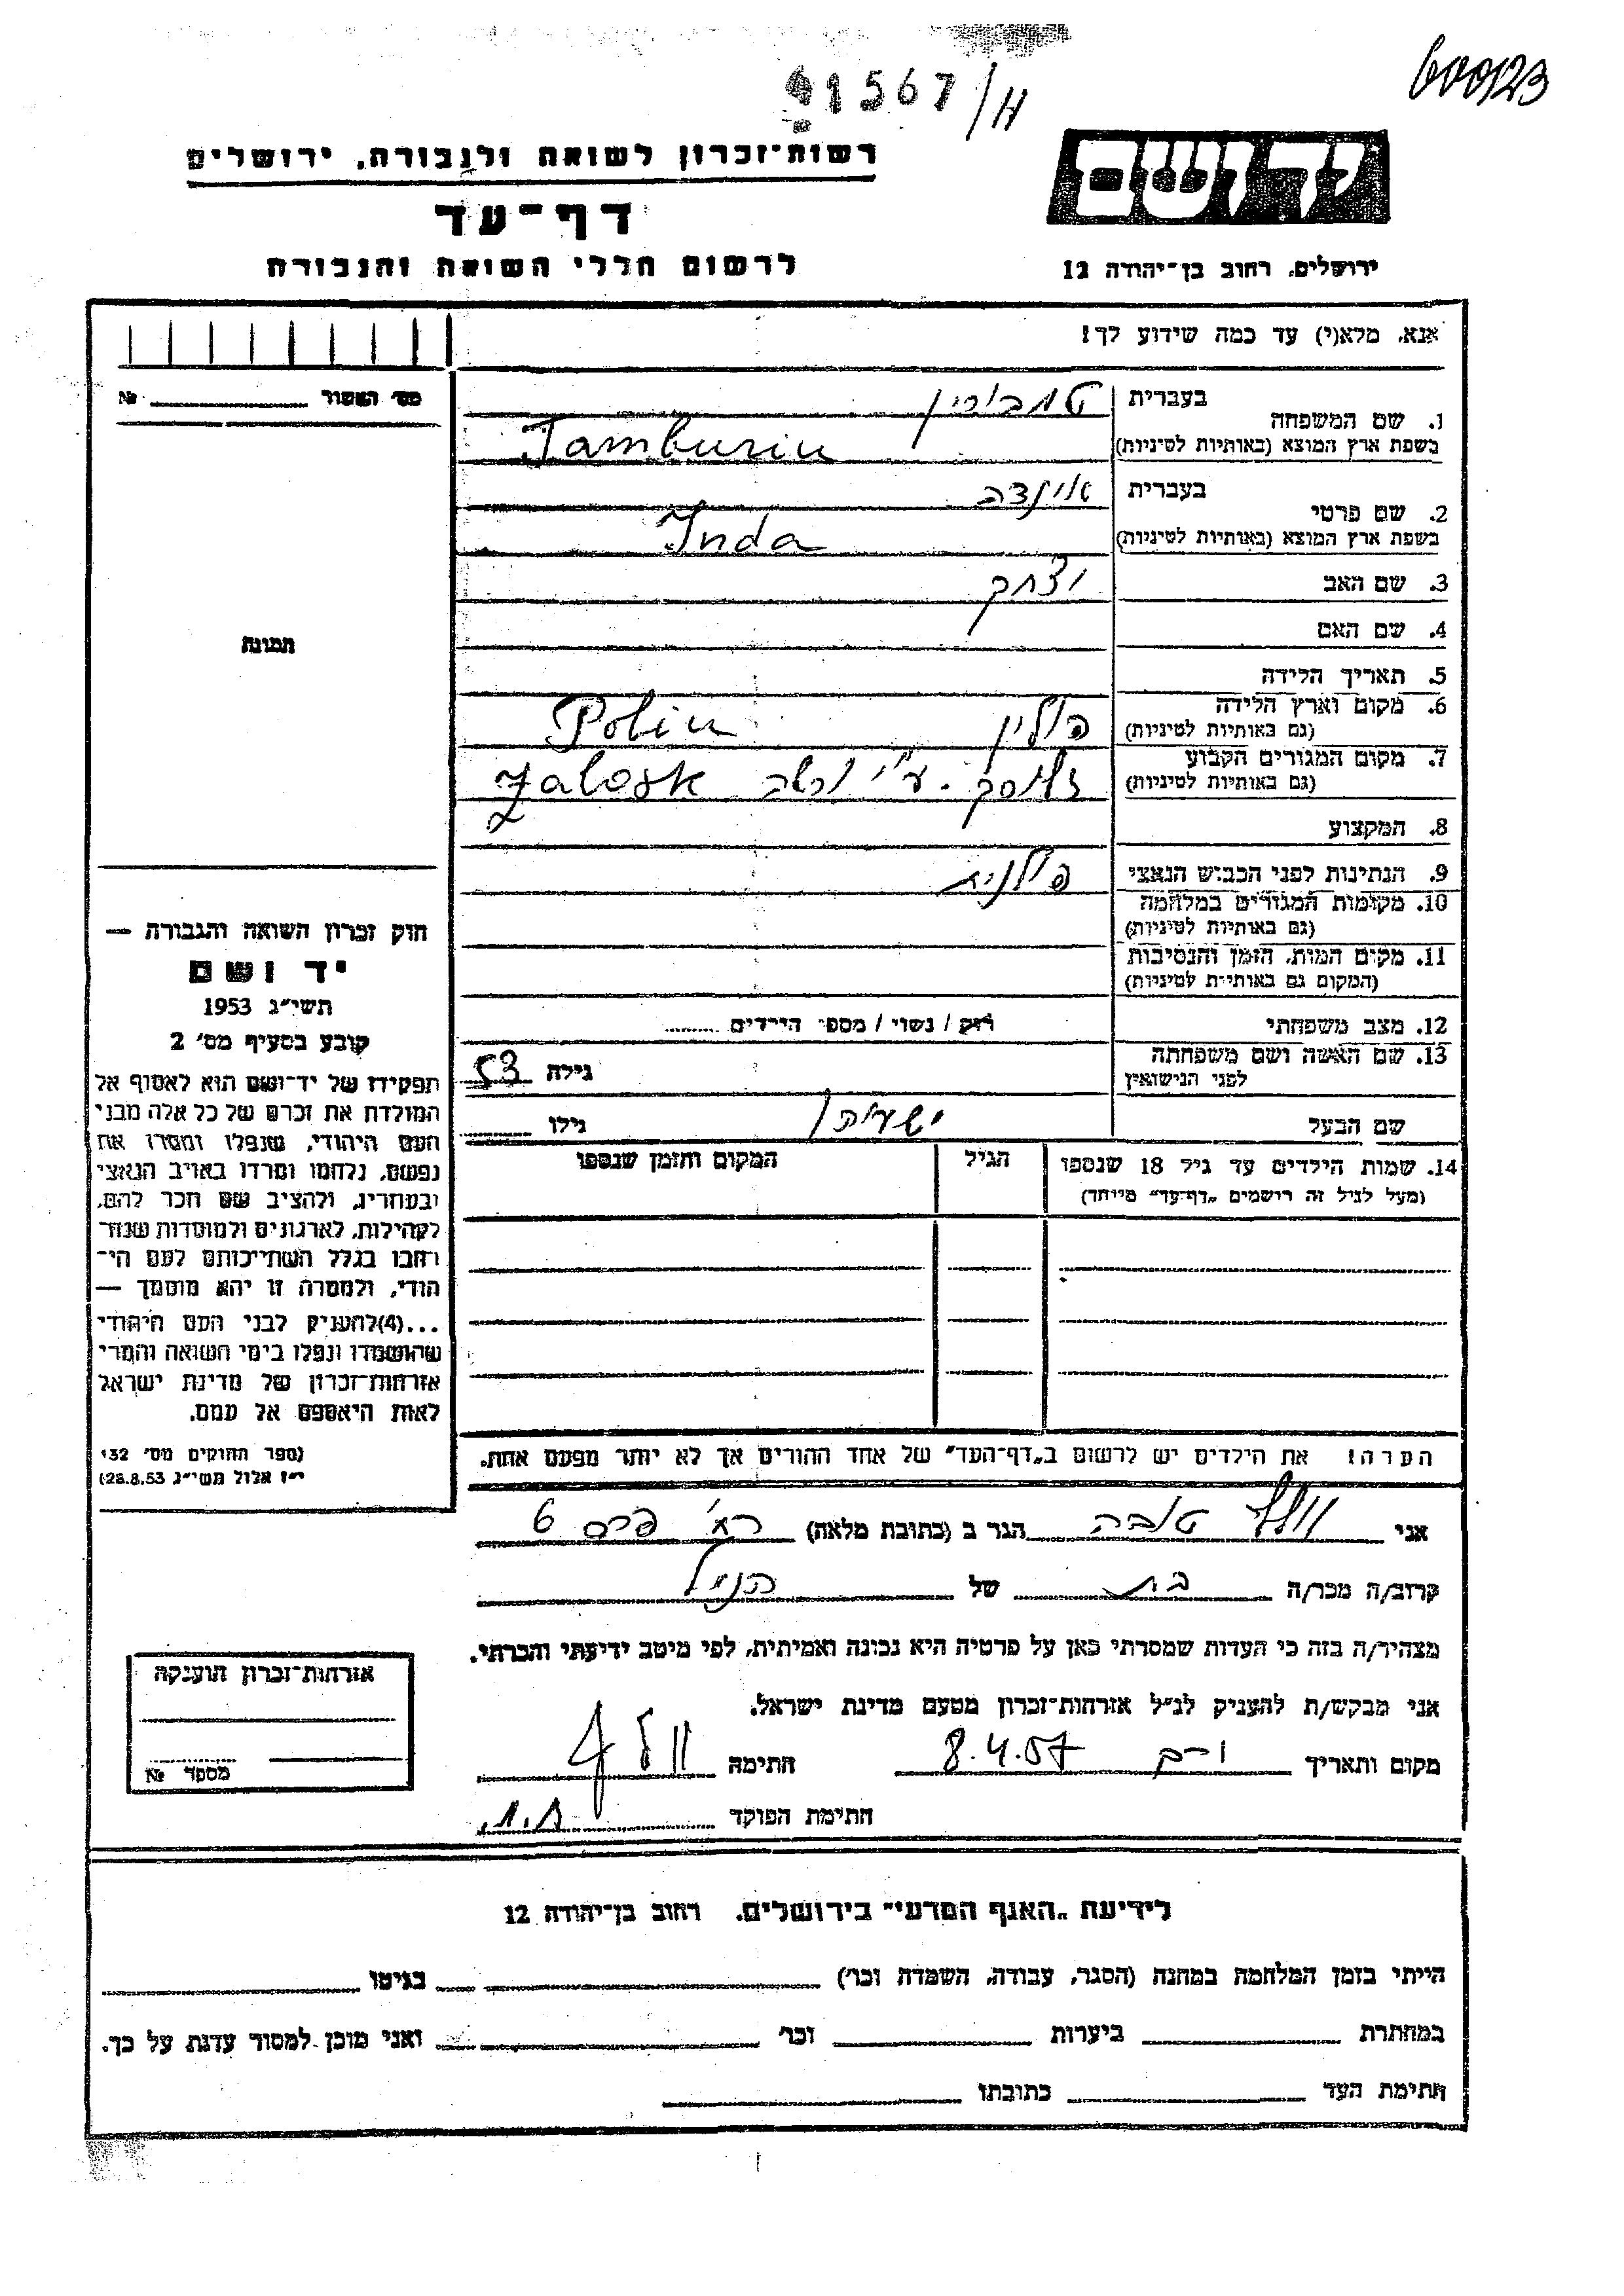 41567/H
600123
רשות-זכרון לשואה ולגבורה, ירושלים
יד ושם
דף-עד
לרשום חללי השואה והגבורה
ירושלים, רחוב בן-יהודה 12
אנא, מלא(י) עד כמה שידוע לך!
מס' האשור № 
1. שם המשפחה בעברית טמבורין
בשפת ארץ המוצא (באותיות לטיניות) Tamburin
2. שם פרטי בעברית אינדה
בשפת ארץ המוצא (באותיות לטיניות) Inda
3. שם האב יצחק
4. שם האם
תמונה
5. תאריך הלידה
6. מקום וארץ הלידה (גם באותיות לטיניות) פולין Polin
7. מקום המגורים הקבוע (גם באותיות לטיניות) Zalosk
8. המקצוע
9. הנתינות לפני הכבוש הנאצי פולנית
10. מקומות המגורים במלחמה (גם באותיות לטיניות)
11. מקום המות, הזמן והנסיבות (המקום גם באותיות לטיניות)
12. מצב משפחתי רוק / נשוי / מספר הילדים
13. שם האשה ושם משפחתה לפני הנישואין גילה 53
שם הבעל גילו
14. שמות הילדים עד גיל 18 שנספו הגיל המקום והזמן שנספו
(מעל לגיל זה רושמים "דף-עד" מיוחד)
הערה! את הילדים יש לרשום ב"דף-העד" של אחד ההורים אך לא יותר מפעם אחת.
חוק זכרון השואה והגבורה —
יד ושם
תשי"ג 1953
קובע בסעיף מס' 2
תפקידו של יד-ושם הוא לאסוף אל
המולדת את זכרם של כל אלה מבני
העם היהודי, שנפלו ומסרו את
נפשם, נלחמו ומרדו באויב הנאצי
ובעוזריו, ולהציב שם וזכר להם,
לקהילות, לארגונים ולמוסדות שנח-
רבו בגלל השתייכותם לעם הי-
הודי, ולמטרה זו יהא מוסמך —
...(4)להעניק לבני העם היהודי
שהושמדו ונפלו בימי השואה והמרי
אזרחות-זכרון של מדינת ישראל
לאות היאספם אל עמם.
(ספר החוקים מס' 132
י"ז אלול תשי"ג 28.8.53)
אני וולף טובה הגר ב (כתובת מלאה) פרס 6
קרוב/ה מכר/ה בת של הנ"ל
מצהיר/ה בזה כי העדות שמסרתי כאן על פרטיה היא נכונה ואמיתית, לפי מיטב ידיעתי והכרתי.
אני מבקש/ת להעניק לנ"ל אזרחות-זכרון מטעם מדינת ישראל.
מקום ותאריך 8.4.57 חתימה וולף
חתימת הפוקד
אזרחות-זכרון הוענקה
מספר №
לידיעת "האגף המדעי" בירושלים, רחוב בן-יהודה 12
הייתי בזמן המלחמה במחנה (הסגר, עבודה, השמדה וכו') בגיטו
במחתרת ביערות וכו' ואני מוכן למסור עדות על כך.
חתימת העד כתובתו